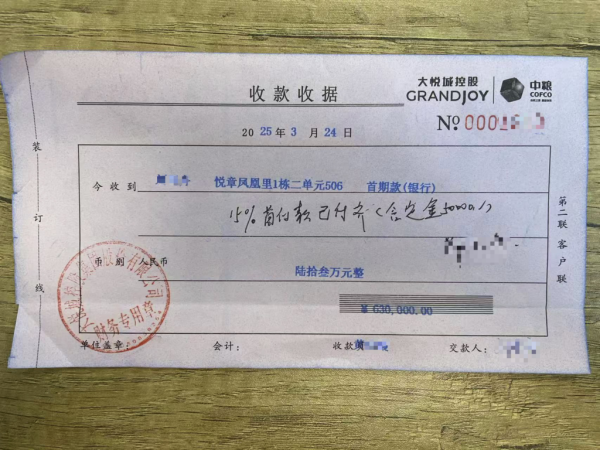 大悦城控股
GRANDJOY
中粮
COFCO
收款收据
№ 0001
2025年3月24日
今收到 悦章凤凰里1栋二单元506 首期款(银行)
15%首付款已付齐(含定金50000)
币别 人民币
陆拾叁万元整
¥ 630,000.00
财务专用章
单位盖章:
会计:
收款
交款人:
装订线
第二联 客户联